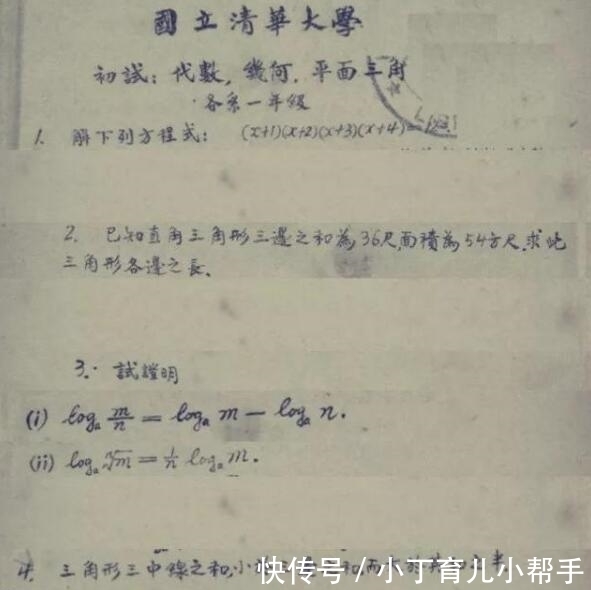 國立清華大學
初試：代數，幾何，平面三角
各系一年級
1. 解下列方程式： (x+1)(x+2)(x+3)(x+4)=
2. 已知直角三角形三邊之和為36尺，面積為54方尺，求此
三角形各邊之長。
3. 試證明
(i) logₐ m/n = logₐ m − logₐ n.
(ii) logₐ ⁿ√m = 1/n logₐ m.
4. 三角形三中線之和，小於
快传号 / 小丁育儿小帮手